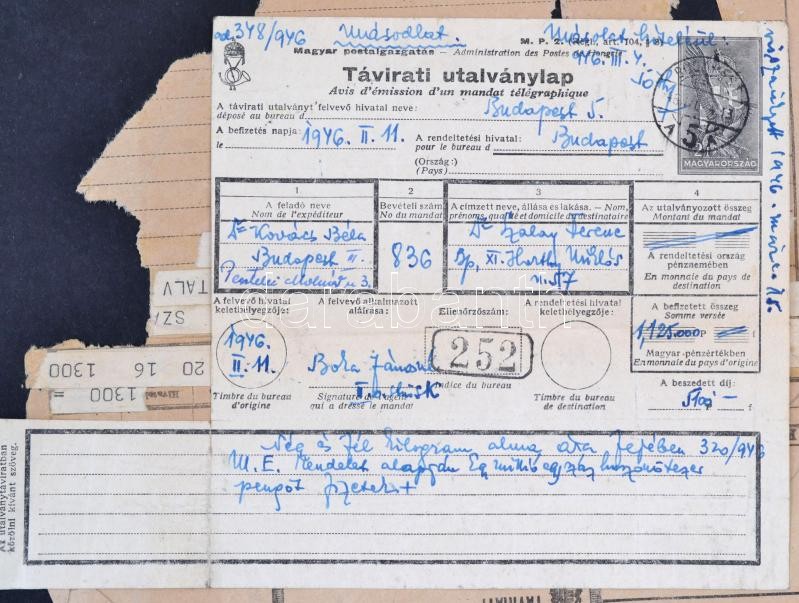 ad. 348/946 Másodlat. Másolat hiteléül:
M. P. 2. (Régl. art. 104, § 2)
Magyar postaigazgatás — Administration des Postes de Hongrie
946. III. 4.
Távirati utalványlap
Avis d'émission d'un mandat télégraphique
A távirati utalványt felvevő hivatal neve:
déposé au bureau d
Budapest 5.
A befizetés napja:
le
1946. II. 11.
A rendeltetési hivatal:
pour le bureau d
Budapest
(Ország:)
(Pays)
MAGYARORSZÁG
1946. március 15.
1
A feladó neve
Nom de l'expéditeur
Dr Kovács Béla
Budapest III.
3.
2
Bevételi szám
No du mandat
836
3
A címzett neve, állása és lakása. — Nom,
prénoms, qualité et domicile du destinataire
Dr Szalay Ferenc
Bp, XI. Horthy Miklós
u. 57
4
Az utalványozott összeg
Montant du mandat
A rendeltetési ország
pénznemében
En monnaie du pays de
destination
A befizetett összeg
Somme versée
1,125.000 P
Magyar pénzértékben
En monnaie du pays d'origine
A beszedett díj:
f
A felvevő hivatal
keletbélyegzője:
1946.
II. 11.
Timbre du bureau
d'origine
A felvevő alkalmazott
aláírása:
Boka János
Signature de l'agent
qui a dressé le mandat
Ellenőrzőszám:
252
Indice du bureau
A rendeltetési hivatal
keletbélyegzője:
Timbre du bureau
de destination
TALV
SZA
20 16 1300
1300 =
Az utalványtáviratban
közölni kívánt szöveg.
Nég és fél kilogram alma ára fejében 320/946
M. E. Rendelet alapján Egymillióegyszázhuszonötezer
pengőt fizetek +
darabanth